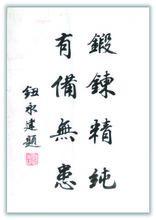 鍛鍊精純
有備無患
鈕永建題